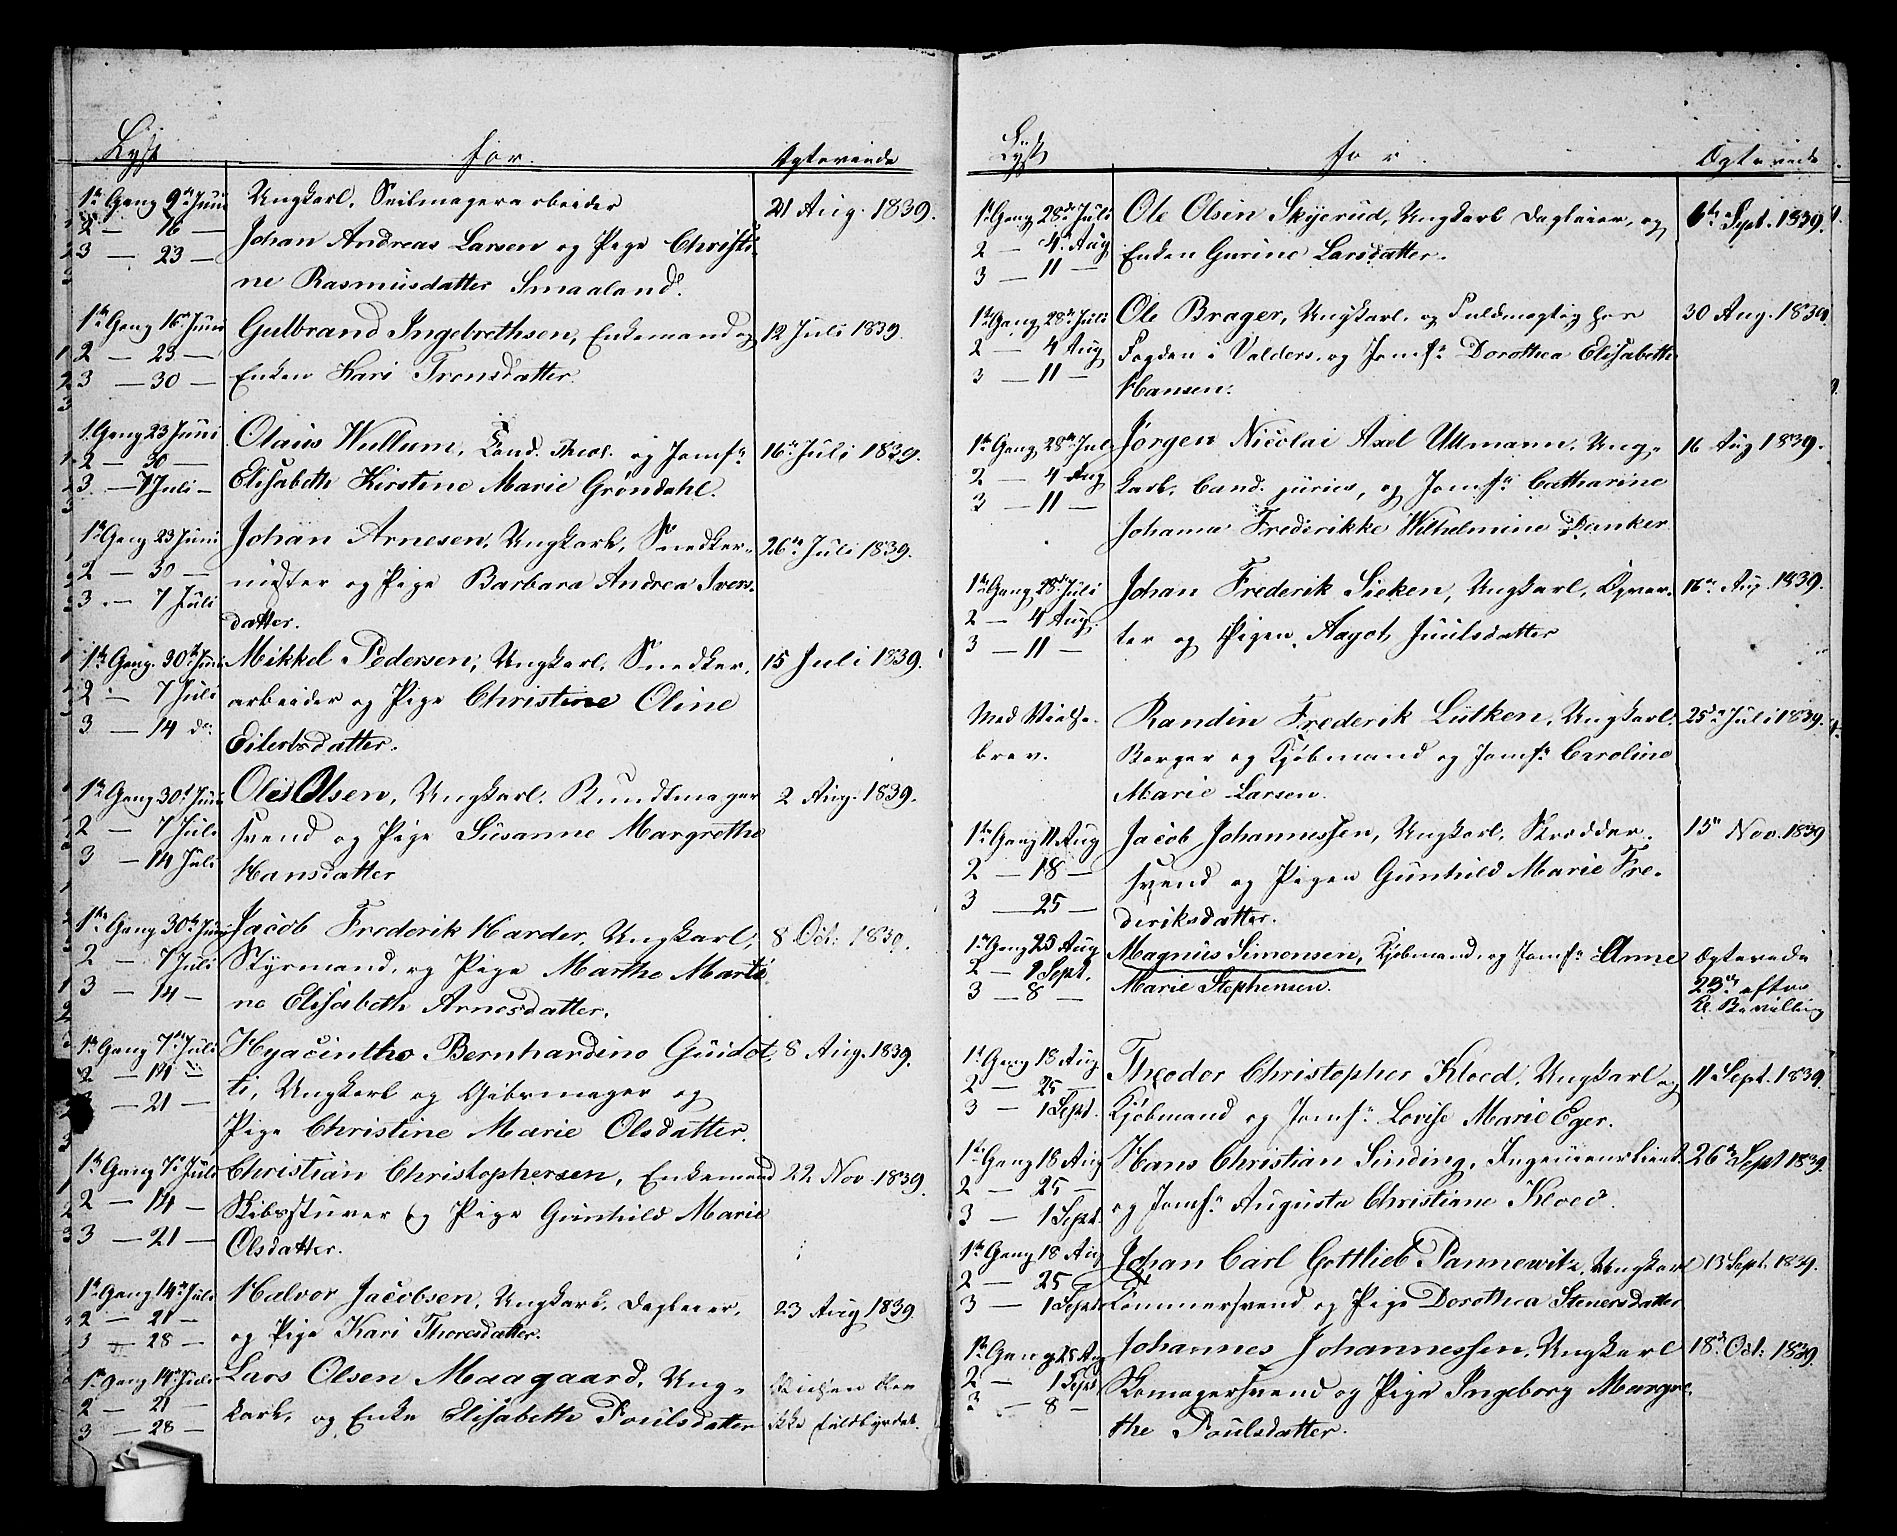 Lyst for. Ægteviede
1ste Gang 9de Juni Ungkarl, Seilmagerarbeider 21 Aug. 1839.
2 — 16 — Johan Andreas Larsen og Pige Christi-
3 — 23 — ne Rasmusdatter Smaaland.
1ste Gang 16de Juni Gulbrand Ingebrethsen, Enkemand og 12 Juli 1839.
2 — 23 — Enken Kari Tronsdatter.
3 — 30 —
1. Gang 23 Juni Olaus Wullum, Cand. Theol. og Jomfr 16de Juli 1839.
2 — 30 — Elisabeth Kirstine Marie Grøndahl.
3 — 7 Juli —
1ste Gang 23 Juni Johan Arnesen, Ungkarl, Snedker- 26de Juli 1839.
2 — 30 — mester og Pige Barbara Andrea Ivers-
3 — 7 Juli datter.
1ste Gang 30te Juni Mikkel Pedersen, Ungkarl, Snedker- 15 Juli 1839.
2 — 7 Juli arbeider og Pige Christine Oline
3 — 14 do Eilertsdatter.
1ste Gang 30te Juni Ole Olsen, Ungkarl, Bundtmager 2 Aug. 1839.
2 — 7 Juli svend og Pige Susanne Margrethe
3 — 14 Juli Hansdatter
1ste Gang 30te Juni Jacob Frederik Harder, Ungkarl, 8 Oct: 1839.
2 — 7 Juli Styrmand, og Pige Marthe Marti-
3 — 14 — ne Elisabeth Arnesdatter.
1ste Gang 7de Juli Hyacintho Bernhardino Guidot- 8 Aug. 1839.
2 — 14 — ti, Ungkarl og Gibsmager og
— 21 — Pige Christine Marie Olsdatter.
1ste Gang 7de Juli Christian Christophersen, Enkemand 22 Nov. 1839.
2 — 14 — Skibsstuver og Pige Gunhild Marie
3 — 21 — Olsdatter.
1ste Gang 14de Juli Halvor Jacobsen, Ungkarl, Dagleier, 23 Aug 1839.
2 — 21 — og Pige Kari Thoresdatter.
3 — 28 —
1ste Gang 14de Juli Lars Olsen Maagaard, Ung-
2 — 21 — karl, og Enke Elisabeth Poulsdatter ikke fuldbyrdet.
3 — 28 —
Lyst for. Ægteviede
1ste Gang 28de Juli Ole Olsen Skjerud, Ungkarl Dagleier, og 6te Sept. 1839.
2 — 4de Aug Enken Gurine Larsdatter.
3 — 11 —
1ste Gang 28de Juli Ole Brager, Ungkarl, og Fuldmægtig hos 30 Aug. 1839.
2 — 4 Aug Fogden i Valders, og Jomfr Dorothea Elisabeth
3 — 11 — Hansen.
1ste Gang 28de Jul Jørgen Nicolai Axel Ullmann, Ung- 16 Aug 1839.
2 — 4 Aug karl, Cand. juries, og Jomfr Catharine
3 — 11 — Johanna Frederikke Wilhelmine Danker
1ste Gang 28de Juli Johan Frederik Sieken, Ungkarl, Opvar- 16de Aug. 1839.
2 — 4 Aug. ter og Pigen, Aagot Juulsdatter
3 — 11 —
Med Vielse- Randin Frederik Lütken, Ungkarl, 25de Juli 1839.
brev. Borger og Kjøbmand og Jomfr Caroline
Marie Larsen.
1ste Gang 11 Aug Jacob Johannessen, Ungkarl, Skrædder- 15de Nov. 1839
2 — 18 — svend og Pigen Gunhild Marie Fre-
3 — 25 — deriksdatter.
1ste Gang 25 Aug Magnus Simonsen, Kjøbmand, og Jomfr Anne Ægteviede
2 — 1 Sept. Marie Stephensen. 23de efter
3 — 8 — Kl. Bevilling
1ste Gang 18 Aug Theodor Christopher Kloed, Ungkarl og 11 Sept. 1839.
2 — 25 — Kjøbmand og Jomfr Lovise Marie Eger.
3 — 1 Sept.
1ste Gang 18 Aug Hans Christian Sinding, Ingenieurlieut. 26de Sept 1839.
2 — 25 — og Jomfr Augusta Christiane Kloed.
3 — 1 Sept.
1ste Gang 18 Aug Johan Carl Gottlieb Pannewitz, Ungkarl 13 Sept. 1839.
2 — 25 — Tømmersvend og Pige Dorothea Stenersdatter
3 — 1 Sept
1ste Gang 25 Aug Johannes Johannessen, Ungkarl 18de Oct: 1839.
2 — 1 Sept Skomagersvend og Pige Ingeborg Margre-
3 — 8 — the Poulsdatter.